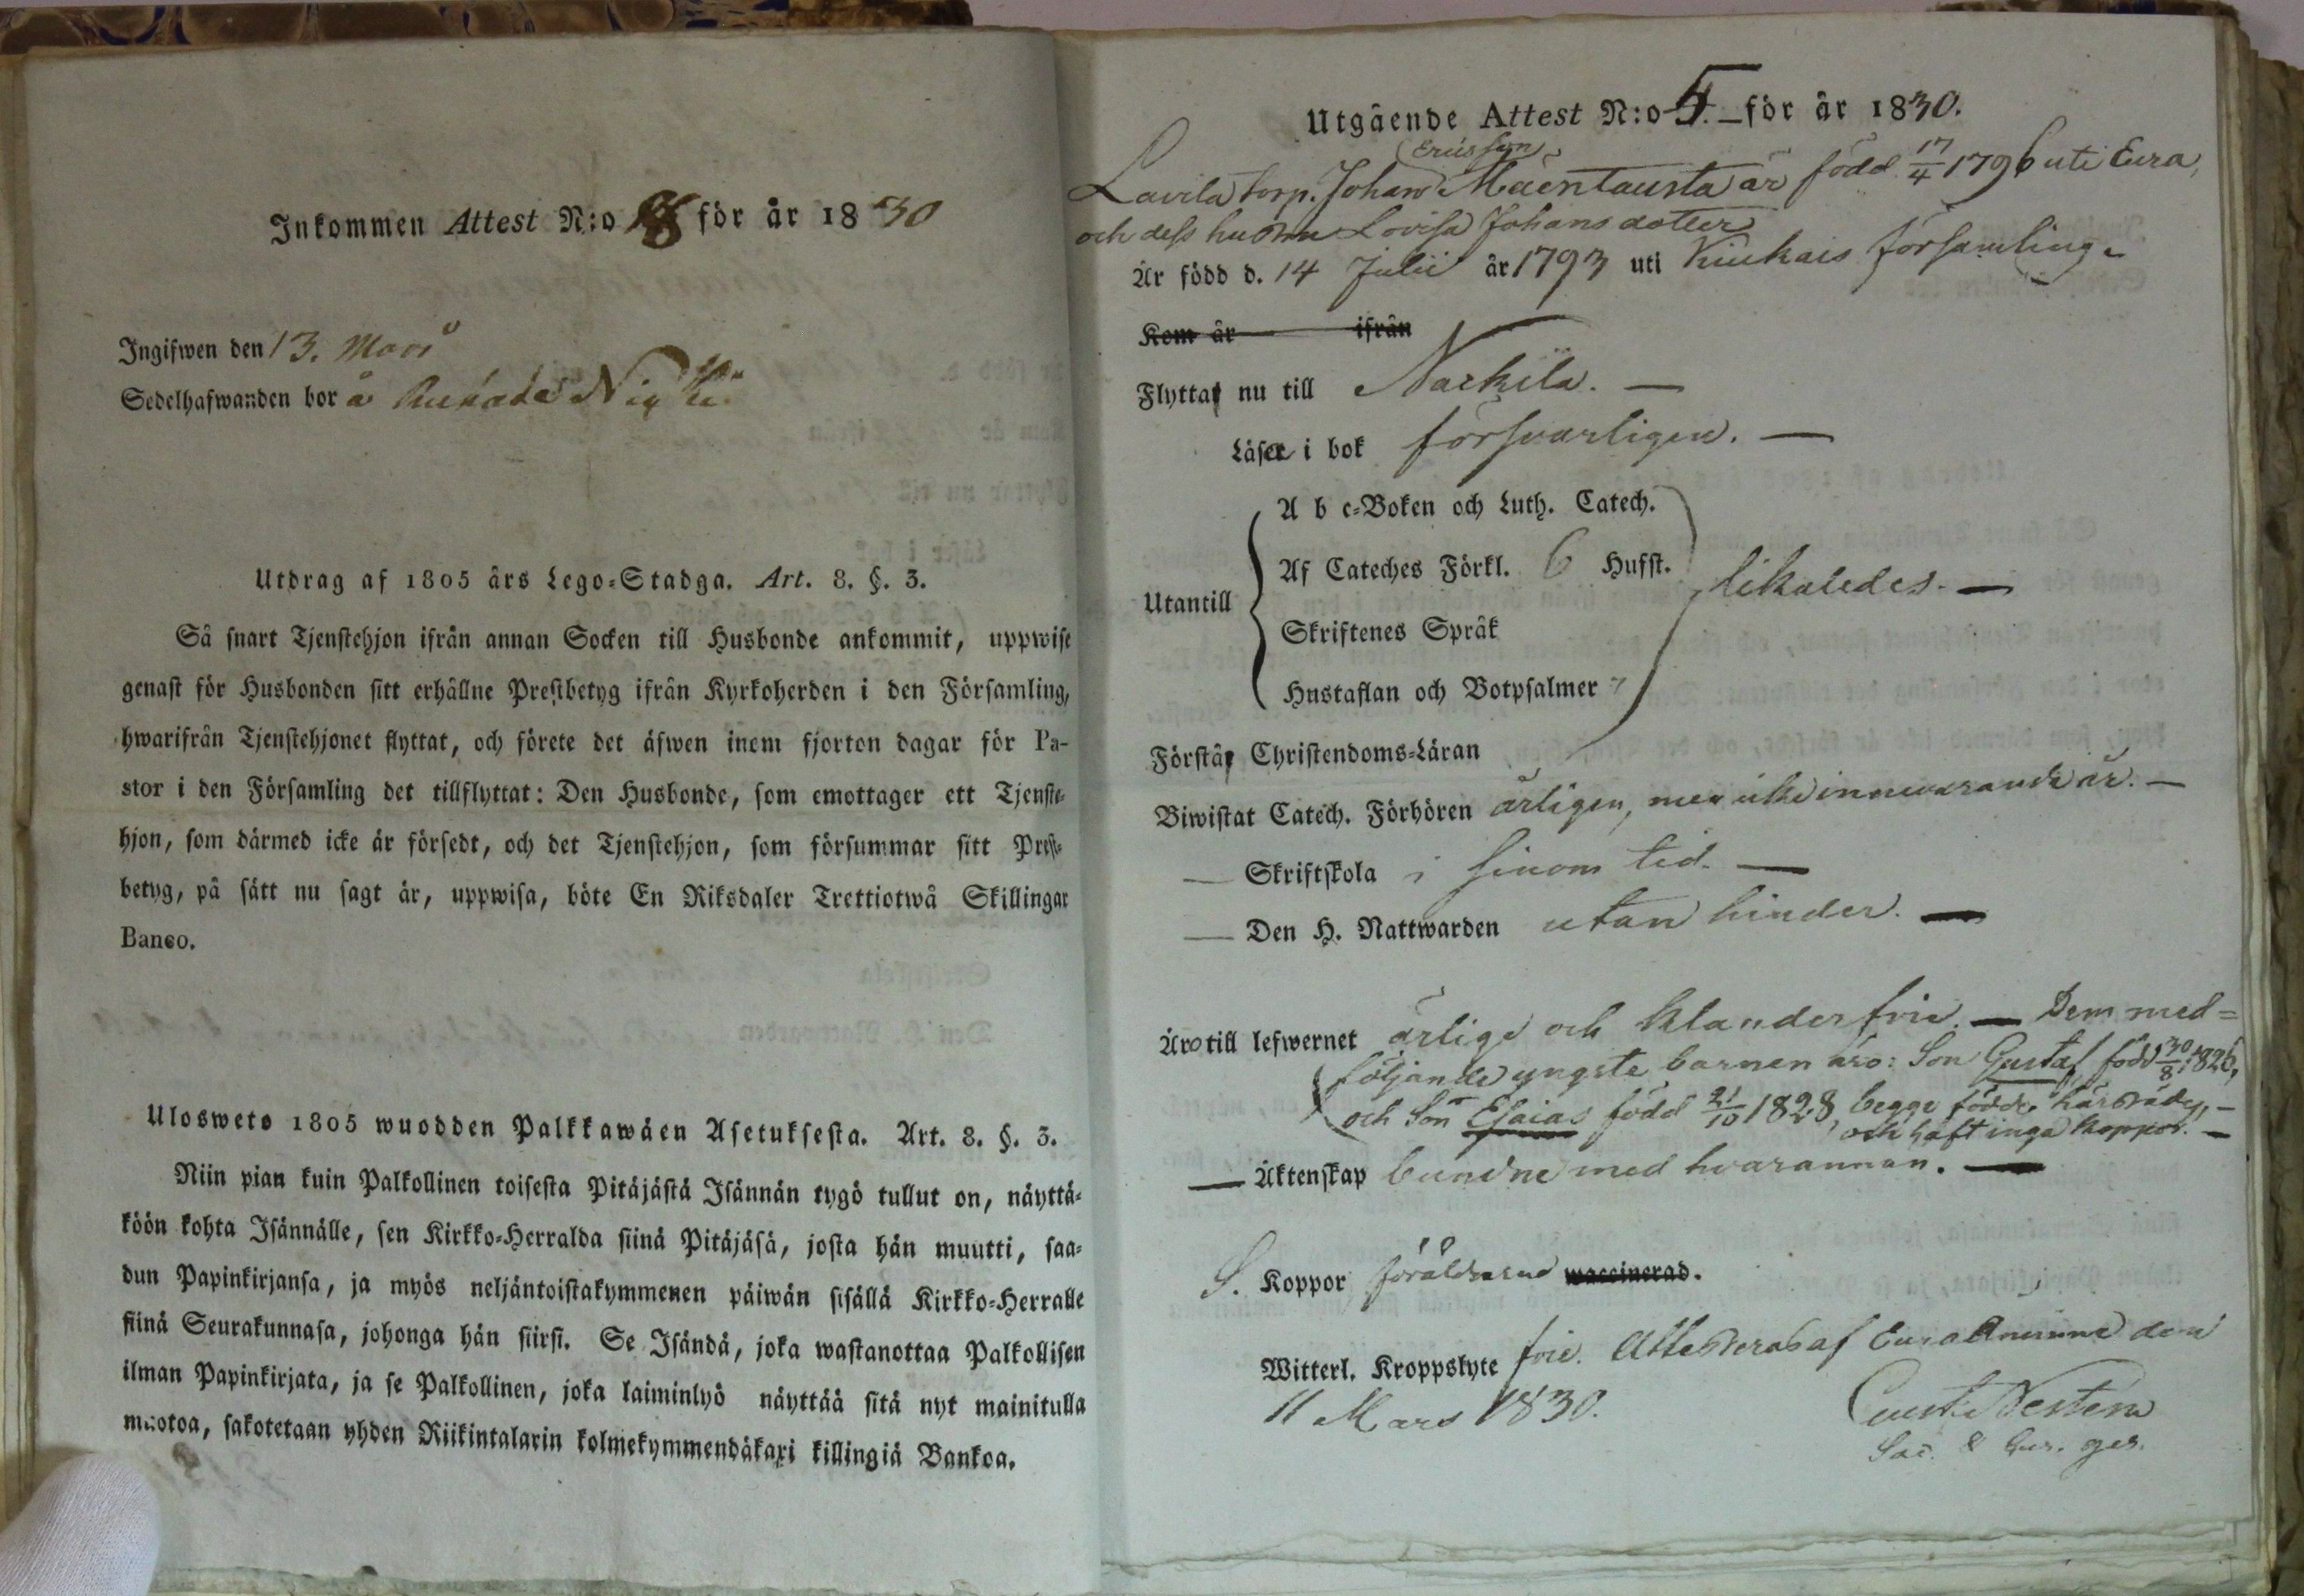 Inkommen Attest N:o 8 för år 1830
Ingifwen den 13. Mars
Sedelhafwanden bor å
Utdrag af 1805 års Lego-Stadga. Art. 8. §. 3.
Så snart Tjenstehjon ifrån annan Socken till Husbonde ankommit, uppwise
genast för Husbonden sitt erhållne Prestbetyg ifrån Kyrkoherden i den Församling,
hwarifrån Tjenstehjonet flyttat, och förete det äfwen inom fjorton dagar för Pa-
stor i den Församling det tillflyttat: Den Husbonde, som emottager ett Tjenste-
hjon, som därmed icke är försedt, och det Tjenstehjon, som försummar sitt Prest-
betyg, på sätt nu sagt är, uppwisa, böte En Riksdaler Trettiotwå Skillingar
Banco.
Ulosweto 1805 wuodden Palkkawäen Asetuksesta. Art. 8. §. 3.
Niin pian kuin Palkollinen toisesta Pitäjästä Isännän tygö tullut on, näyttä-
köön kohta Isännälle, sen Kirkko-Herralda siinä Pitäjäsä, josta hän muutti, saa-
dun Papinkirjansa, ja myös neljäntoistakymmenen päiwän sisällä Kirkko-Herralle
siinä Seurakunnasa, johonga hän siirsi. Se Isändä, joka wastanottaa Palkollisen
ilman Papinkirjata, ja se Palkollinen, joka laiminlyö näyttää sitä nyt mainitulla
muotoa, sakotetaan yhden Riikintalarin kolmekymmendäkaxi killingiä Bankoa.
Utgående Attest N:o 5. för år 1830.
Ericsson
Lavila torp. Johan Mäentausta är född 17/4 1796 uti Eura,
och dess hustru Lovisa Johansdotter
Är född d. 14 Julii år 1793 uti Kiukais församling.
Kom år ifrån
Flyttar nu till Narkila. —
Läser i bok försvarligen. —
A b c-Boken och Luth. Catech.
Af Cateches Förkl. 6 Hufst.
Utantill
likaledes. —
Skriftenes Språk
Hustaflan och Botpsalmer 7
Förstår Christendoms-Läran
Biwistat Catech. Förhören årligen, men icke innevarande år. —
— Skriftskola i sinom tid. —
— Den H. Nattwarden utan hinder. —
Äro till lefwernet ärlige och klanderfrie. — Dem med=
följande yngste barnen äro: Son Gustaf född 30/8 1826,
och Son Esaias född 21/10 1828, begge födde härstädes, —
och haft inga koppor. —
— Äktenskap bundne med hvarannan. —
S. Koppor föräldrarne waccinerad.
Witterl. Kroppslyte frie. Attesteras af Eura Aminne den
11 Mars 1830.
Gust. Vestén
Sac. &amp; Cur. ges.